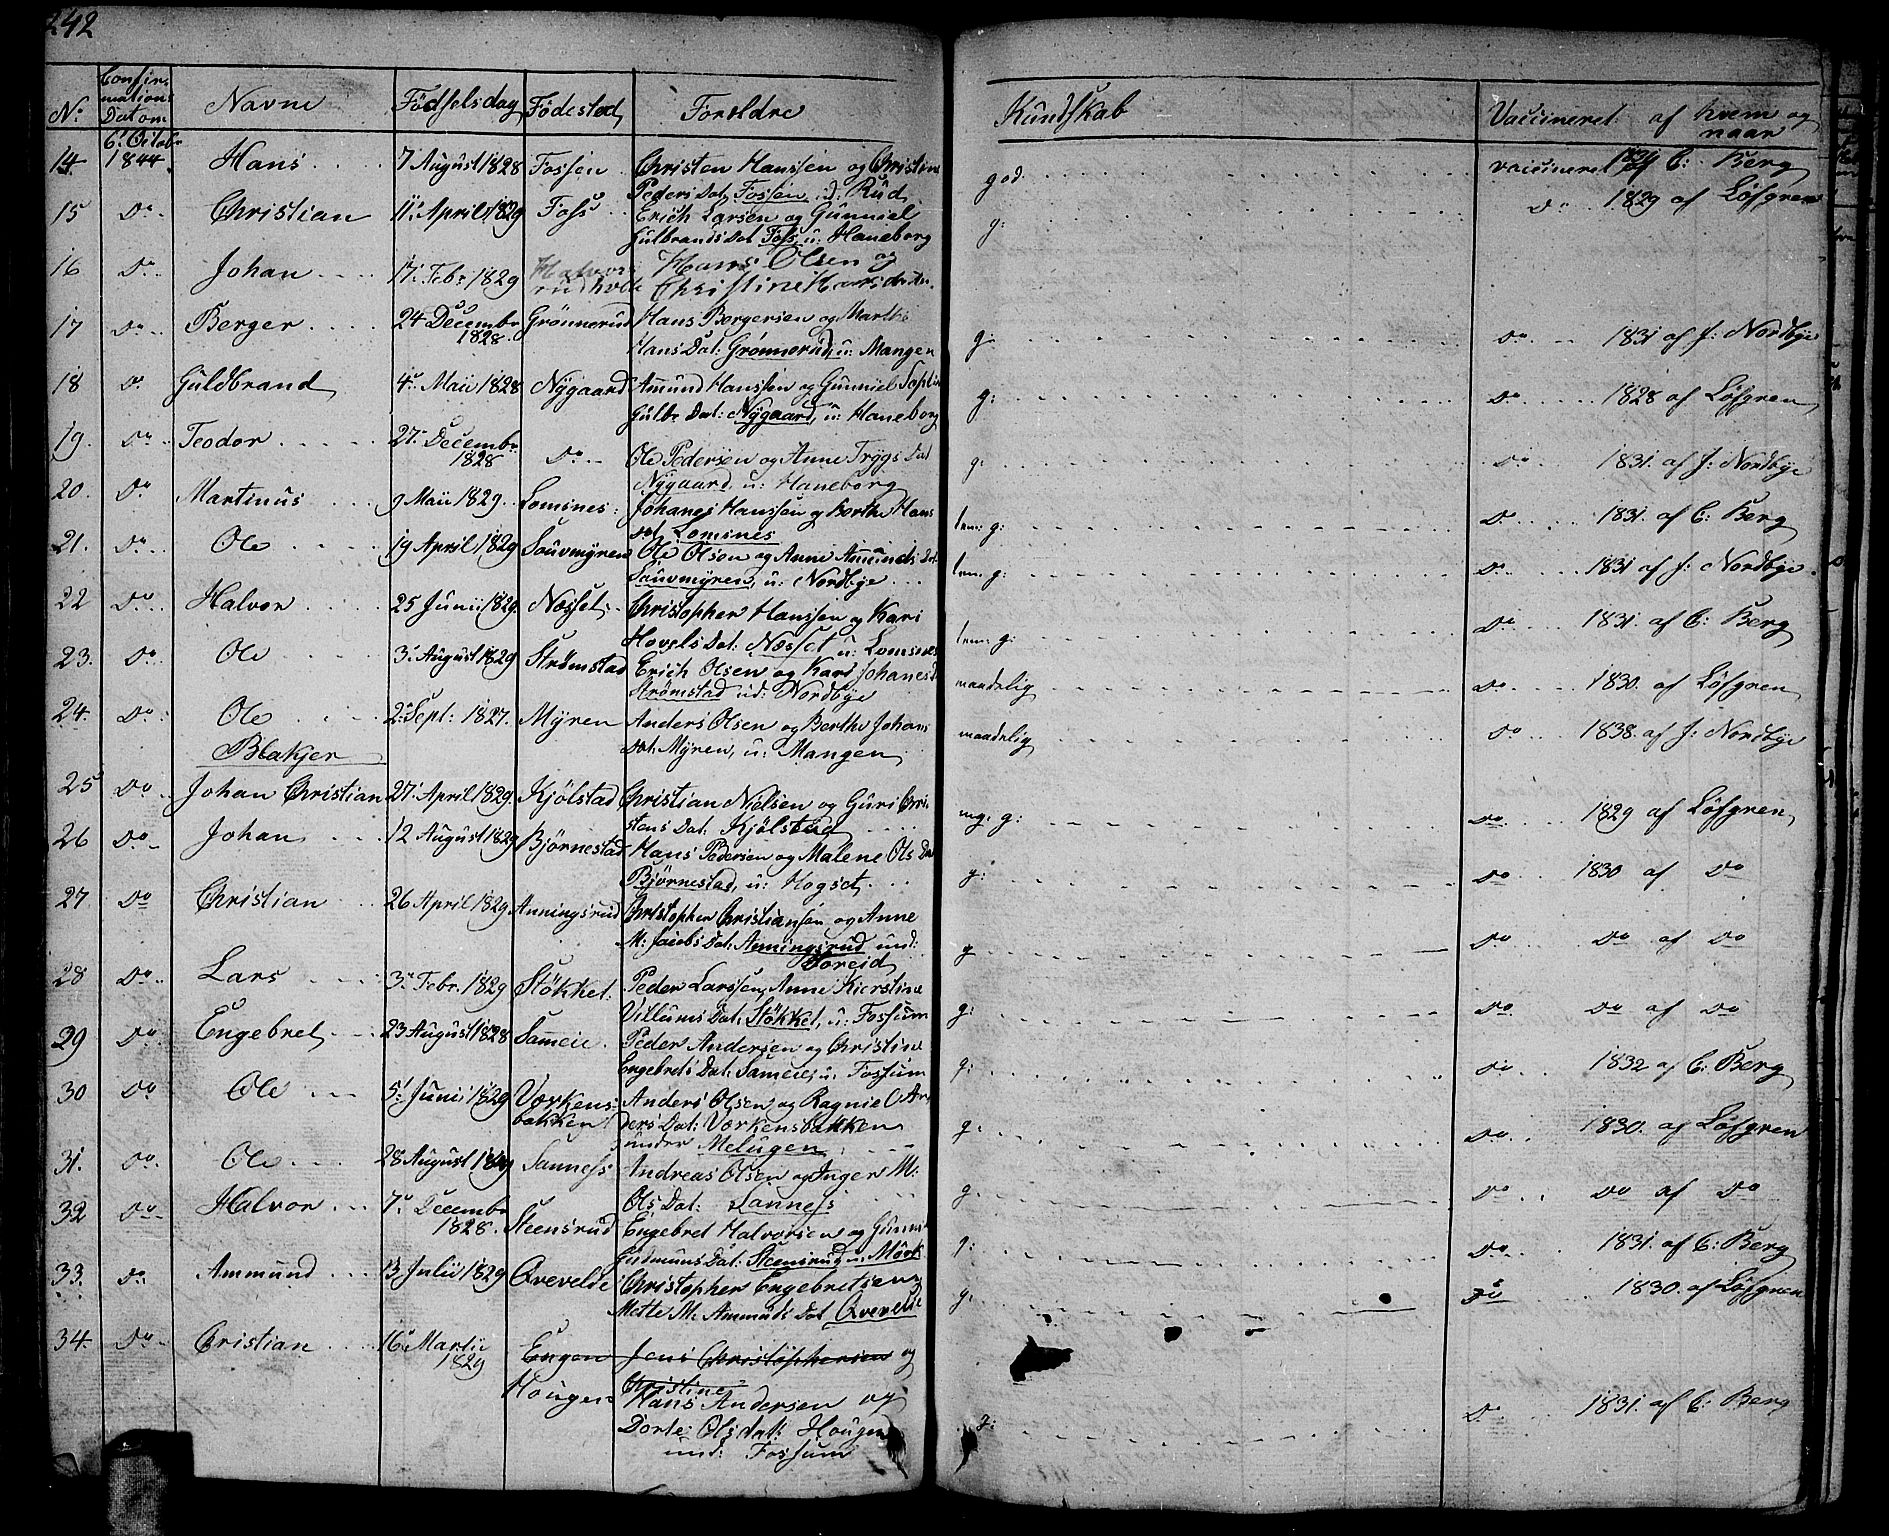 242
No. Confirmations Datom Navne Födselsdag Födested Foreldre Kundskab Vaccineret af hvem og naar
6. Octobr
14 1844 Hans 7 August 1828 Fossen Christen Hanssen og Christine god vaccineret C: Berg
Peders Dat, Fossen, u: Rud
15 Do Christian 11 April 1829 Foss Erich Larsen og Gunniel g: Do 1829 af Löfgren
Gulbrands Dat Foss u: Haneborg
16 Do Johan 17: Febr 1829 Hans Olsen og
Christine
17 Do Berger 24 Decembr 1828 Grönnerud Hans Borgersen og Marthe g: Do 1831 af J: Nordbye
Hans Dat: Grönnerud, u: Mangen
18 Do Guldbrand 4: Maii 1828 Nygaard Amund Hanssen og Gunniel Sophie g: Do 1828 af Löfgren
Gulbr Dat: Nygaard, u: Haneborg
19. Do Teodor 27. Decembr 1828 Do Ole Pedersen og Anne Trygs Dat g: Do 1831. af J: Nordbye
Nygaard, u: Haneborg
20. Do Martinus 9 Maii 1829. Lomsnes: Johanes Hanssen og Berthe Hans tem: g: Do 1831. af C: Berg
dat Lomsnes
21. Do Ole 19 April 1829 Souvmyren Ole Olsen og Anne Amunds Dat tem: g: Do 1831 af J: Nordbye
Souvmyren, u: Nordbye
22 Do Halvor 25 Junii 1829. Næsset Christopher Hanssen og Kari tem: g: Do 1831. af C: Berg
Hovels Dat: Næsset u: Lomsnes
23. Do Ole 3 August 1829 Strömstad Erich Olsen og Kari Johanes D maadelig Do 1830. af Löfgren
Strömstad ud: Nordbye
24. Do Ole 2: Sept: 1827. Myren Anders Olsen og Berthe Johans maadelig Do 1838. af J: Nordbye
Dat: Myren, u: Mangen
Blakjer
25 Do Johan Christian 27 April 1829 Kjölstad Christian Nielsen og Guri Chri- mg: g: Do 1829 af Löfgren
stens Dat: Kjölstad
26 Do Johan 12 August 1829 Björnestad Hans Pedersen og Malene Ols Dat g: Do 1830 af Do
Björnestad, u: Hogset
27 Do Christian 26 April 1829 Anningsrud Christopher Christiansen og Anne g Do Do af Do
M: Jacobs Dat: Anningsrud und:
Toreid
28 Do Lars 3: Febr. 1829 Stökket: Peder Larssen, Anne Kierstine g: Do Do af Do
Villums Dat: Stökket, u: Fossum
29 Do Engebret 23 August 1828 Sameie Peder Andersen og Christine g: Do 1832 af C: Berg
Engebrets Dat: Sameie, u: Fossum
30 Do Ole 5: Junii 1829 Værkens- bakken Anders Olsen og Ragniel An- g: Do 1830. af Löfgren
ders Dat: Værkensbakken
under Melugen
31. Do Ole 28 August 1829 Sanness Andreas Olsen og Inger M: g: Do Do af Do
Ols Dat: Sanness
32 Do Halvor 7: Decembr 1828. Steensrud Engebret Halvorsen og Gunni g: Do 1831. af C: Berg
Gudmuns Dat: Steensrud u: Mörk
33. Do Ammund 13 Julii 1829 Qvevelde Christopher Engebretsen g: Do 1830. af Löfgren
Mette M: Ammunds Dat Qvevelde
34. Do Cristian 16 Martii 1829 Engen Jens Christophersen og
Christine
Hougen Hans Andersen og g: Do 1831. af C: Berg
Dorte Olsdat: Hougen
und: Fossum